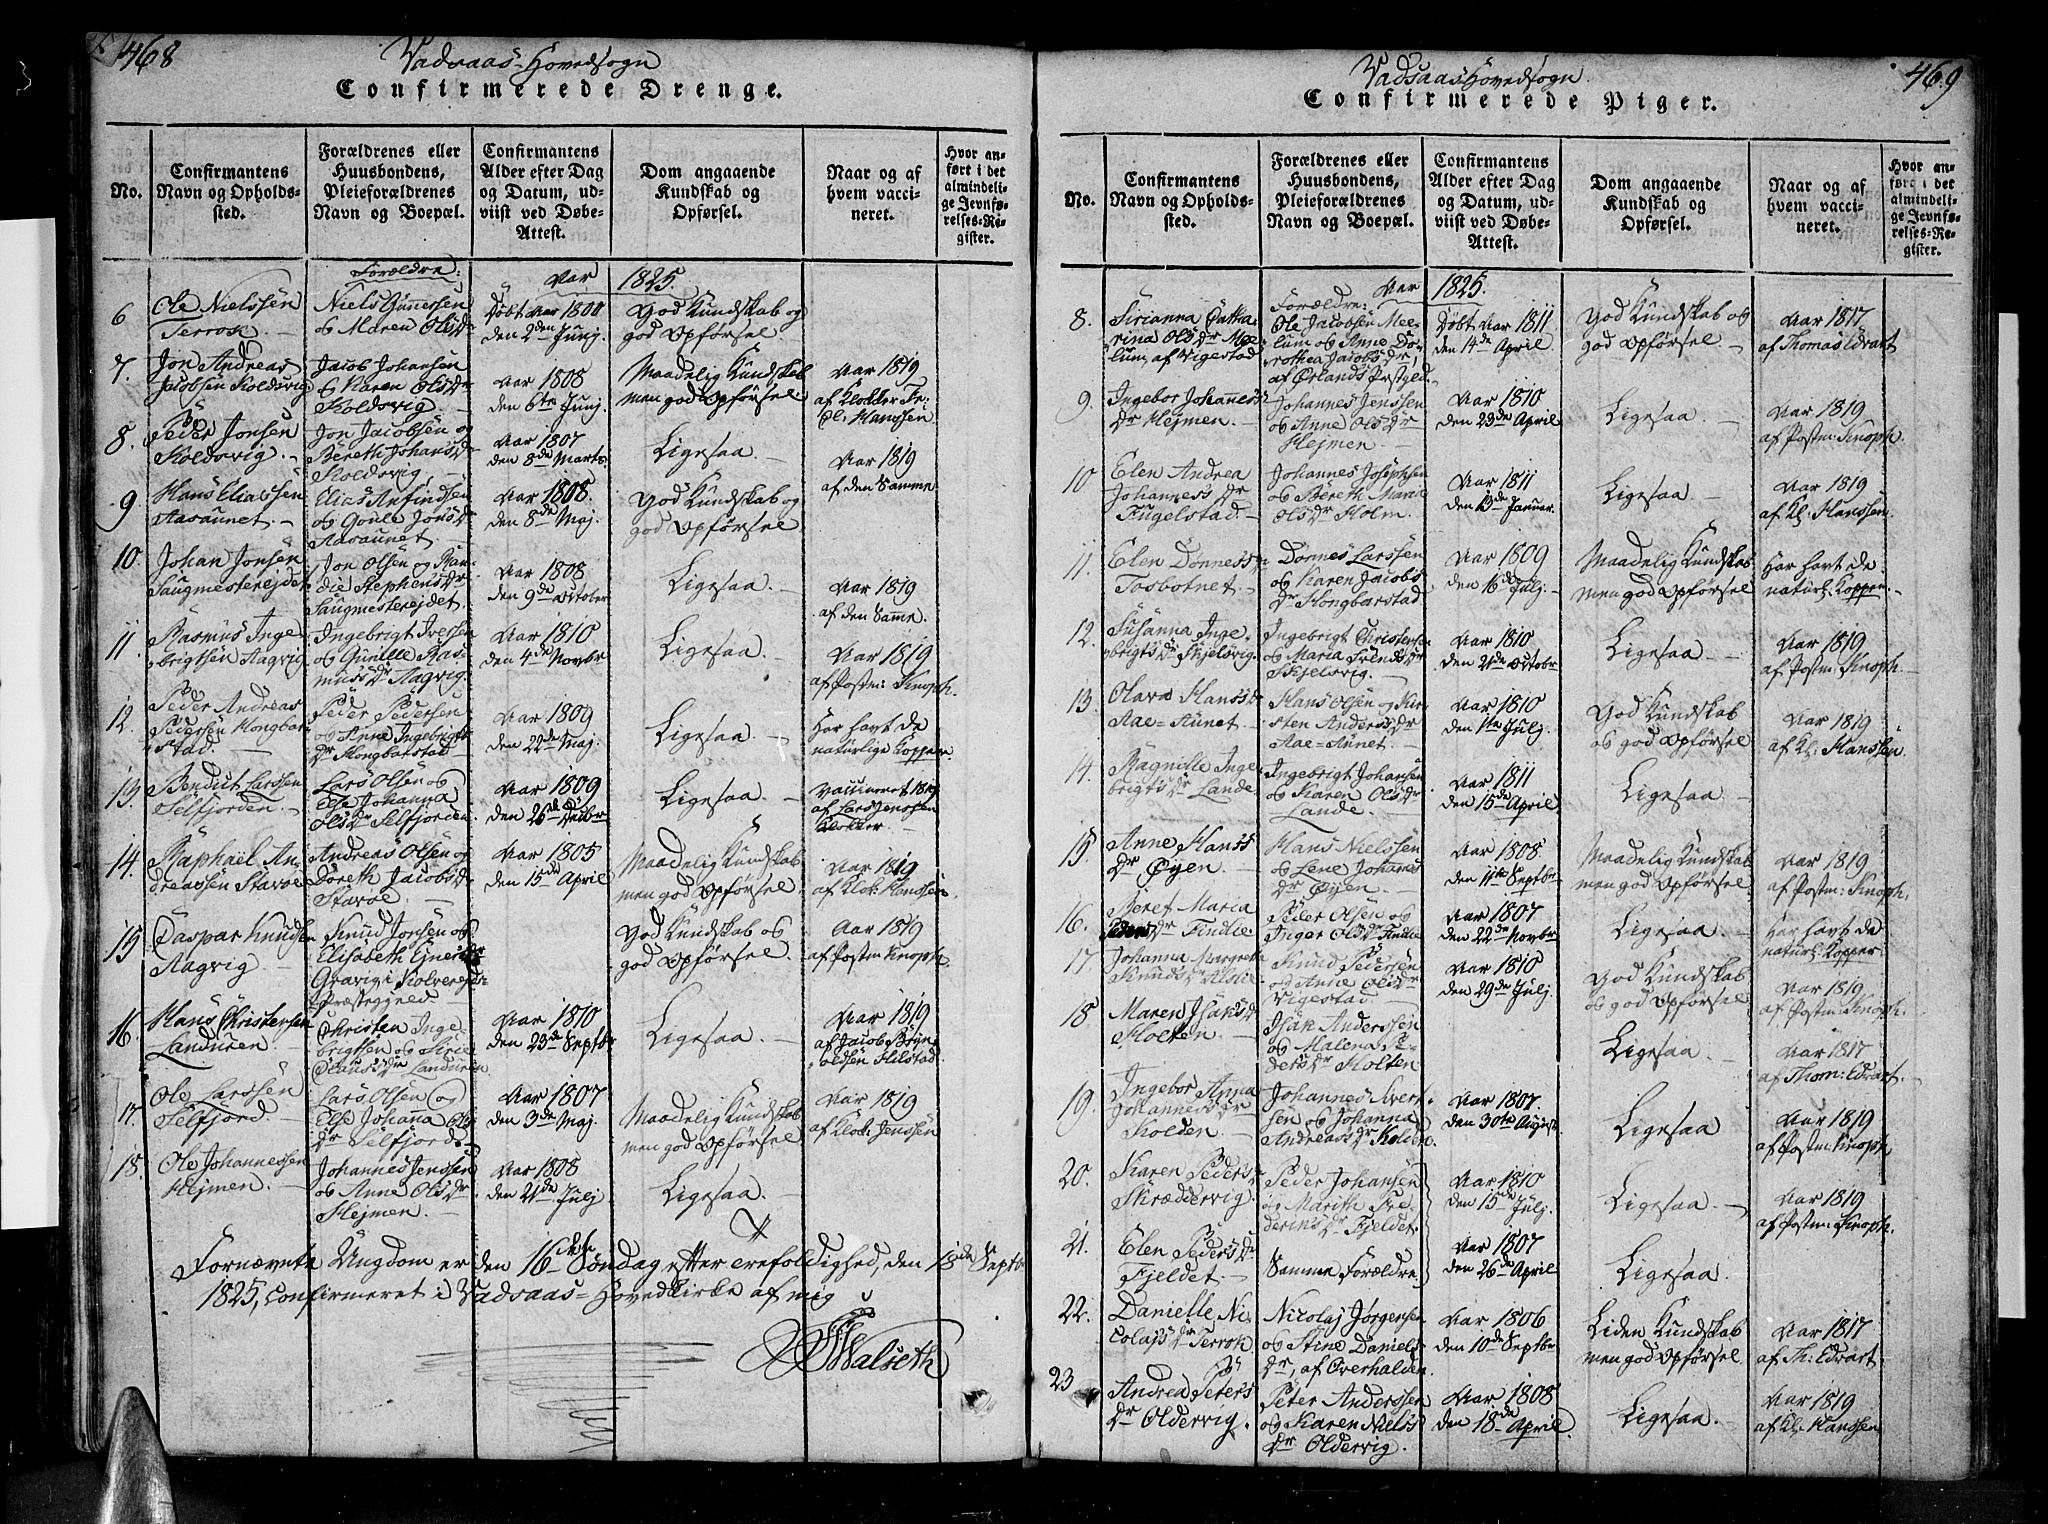 468
Vadsaas-Hovedsogn
Confirmerede Drenge.
No.
Confirmantens
Navn og Opholds-
sted.
Forældrenes eller
Huusbondens,
Pleieforældrenes
Navn og Boepæl.
Confirmantens
Alder efter Dag
og Datum, ud-
viist ved Døbe-
Attest.
Dom angaaende
Kundskab og
Opførsel.
Naar og af
hvem vacci-
neret.
Hvor an-
ført i det
almindeli-
ge Jevnfø-
relses-Re-
gister.
Forældre:
Aar 1825.
6
Ole Nielssen
Terrok.
og Maren Olsdr
Døbt Aar
den 2den Junj.
God Kundskab og
god Opførsel
7.
Jon Andreas
Jacobsen Koldsvig
Jacob Johansen
og Karen Olsdr
Koldsvig
Aar 1808
den 6te Junj.
Maadelig Kundskab
men god Opførsel
Aar 1819
af Klokker
Hanssen
8.
Peder Jonsen
Koldsvig.
Jon Jacobsen og
Bereth Johansd
Koldsvig
Aar 1807
den 8de Marts
Ligesaa
Aar 1819
af den Samme
9
Hans Eliassen
Aasaunet.
Elias Arfindsen
og Jonsdr
Aasaunet.
Aar 1808.
den 8de Maj.
God Kundskab og
god Opførsel
10.
Johan Jonsen
Saugmesterejdet
Jon Olsen og Ran-
die Stephensdr
Saugmesterejdet.
Aar 1808
den 9de October
Ligesaa.
Aar 1819
af den Samme.
11.
Rasmus Inge
brigtsen Aagvig
Ingebrigt Iversen
og Gunille Ras-
musdr Aagvig.
Aar 1810
den 4de Novbr
Ligesaa.
Aar 1819
af Postm: Knoph.
12.
Peder Andreas
Pedersen Hongbar
stad.
Peder Pedersen
og Anne Ingebrigts
dr Hongbarstad
Aar 1809
den 22de Maj.
Ligesaa.
Har havt de
naturlige Kopper.
13.
Bendict Larssen
Selfjorden.
Lars Olsen og
Else Johanna
Olsdr Selfjorden
Aar 1809
den 26de Decbr
Ligesaa
vaccineret 1819
af Lars Jenssen
Klokker.
14.
Raphael An
dreassen Stavøe
Andreas Olsen og
Doreth Jacobsd
Stavøe.
Aar 1805
den 15de April
Maadelig Kundskab
men god Opførsel.
Aar 1819
af Klok: Hanssen.
15
Caspar Knudsen
Aagvig
Knud Jonsen og
Elisabeth
Gravig i Kolvereids
Præstegjeld
God Kundskab og
god Opførsel.
Aar 1819
af Postm Knoph.
16.
Hans Christensen
Landuren.
Christen Inge-
brigtsen og Sirie
Clausdr Landuren
Aar 1810
den 23de Septbr
Ligesaa
Aar 1819
af Jacob Bryn
oldsen Hilstad.
17.
Ole Larssen
Selfjord
Lars Olsen og
Else Johanna Ols
dr Selfjord
Aar 1807
den 3de Maj.
Maadelig Kundskab
men god Opførsel.
Aar 1819
af Klok: Jenssen
18.
Ole Johannessen
Hejmen.
Johannes Jenssen
og Anne Olsdr
Hejmen.
Aar 1808
den 21de Julj
Ligesaa.
Fornævnte Ungdom er den 16de Søndag efter Trefoldighed, den 18de Septbr
1825, confirmeret i Vadsaas-Hovedkirke af mig
Walseth
469
Vadsaas Hovedsogn
Confirmerede Piger.
No.
Confirmantens
Navn og Opholds-
sted.
Forældrenes eller
Huusbondens,
Pleieforældrenes
Navn og Boepæl.
Confirmantens
Alder efter Dag
og Datum, ud-
viist ved Døbe-
Attest.
Dom angaaende
Kundskab og
Opførsel.
Naar og af
hvem vacci-
neret.
Hvor an-
ført i det
almindeli-
ge Jevnfø-
relses-Re-
gister.
Forældre:
Aar 1825.
8.
Sirianna Catha
rina Olsdr Mee
lum, af Vigestad
Ole Jacobsen Mee-
lum og Anne Do-
rothea Jacobsdr
af Ørlands Præstgjeld.
Døbt Aar 1811
den 14de April
God Kundskab og
god Opførsel.
Aar 1817
af Thomas Edvart
9.
Ingebor Johannes
dr Hejmen.
Johannes Jenssen
og Anne Olsdr
Hejmen
Aar 1810
den 23de April
Ligesaa
Aar 1819
af Postm: Knoph.
10
Elen Andrea
Johannesdr
Fugelstad.
Johannes Josephsen
og Bereth Maria
Olsdr Holm.
Aar 1811
den 13de Januar.
Ligesaa
Aar 1819
af Kl: Hanssen.
11.
Elen Donnes
Tosbotnet
Donnes Larssen
og Karen Jacobs
dr Hongbarstad
Aar 1809
den 16de Julj.
Maadelig Kundskab
men god Opførsel
Har havt de
naturl: Kopper.
12.
Susanna Inge-
brigtsdr Skjelsvig.
Ingebrigt Christensen
og Maria Svendsdr
Skjelsvig.
Aar 1810
den 21de Octobr
Ligesaa.
Aar 1819
af Postm: Knoph.
13.
Olava Hansd
Aae-Aunet
Hans Olsen og Kir
sten Andersdr
Aae-Aunet.
Aar 1810
den 1ste Julj.
God Kundskab
og god Opførsel
Aar 1819
af Kl: Hanssen
14.
Ragnille Inge
brigtsdr Lande
Ingebrigt Johansen
og Karen Olsdr
Lande.
Aar 1811
den 15de April
Ligesaa
15
Anne Hans
dr Øyen
Hans Nielssen
og Lene Johannes
dr Øyen
Aar 1808
den 11te Septbr
Maadelig Kundskab
men god Opførsel
Aar 1819
af Postm: Knoph.
16.
Beret Maria
Pedersdr Findlie.
Peder Olsen og
Inger Olsdr Findlie
Aar 1807
den 22de Novbr
Ligesaa
Har havt de
naturl: Kopper
17
Johanna Margreth
Knudsdr
Knud Pedersen
og Anne Olsdr
Vigestad
Aar 1810
den 29de Julj.
God Kundskab
og god Opførsel
Aar 1819
af Postm: Knoph.
18
Maren Isaksd
Holten.
Isak Anderssen
og Malena Pe-
dersdr Holten
Ligesaa
Aar 1817
af Thom: Edvart
19.
Ingebor Anna
Johannesdr
Kolden
Johannes Siverts-
sen og Johanna
Andreasdr Kolden
Aar 1807.
den 30te August
Ligesaa
Aar 1819
af Postm: Knoph
20.
Karen Peders
Skræddervig.
Peder Johansen
og Marith Fre-
derinsdr Fjeldet.
Aar 1810
den 15de Julj.
Ligesaa
Aar 1819
af Postm: Knoph.
21.
Elen Pedersdr
Fjeldet.
Samme Forældre
Aar 1807
den 26de April
Ligesaa.
22.
Danielle Ni
colajsdr Terrok
Nicolaj Jørgensen
og Stine Daniels-
dr, af Overhalden
Aar 1806
den 10de Septbr
Liden Kundskab
men god Opførsel.
Aar 1817
af Th: Edvart.
23
Andrea Peters
dr Oldervig.
Peter Anderssen
og Karen Niels
dr Oldervig.
Aar 1808
den 18de April.
Ligesaa.
Aar 1819
af Kl: Hanssen